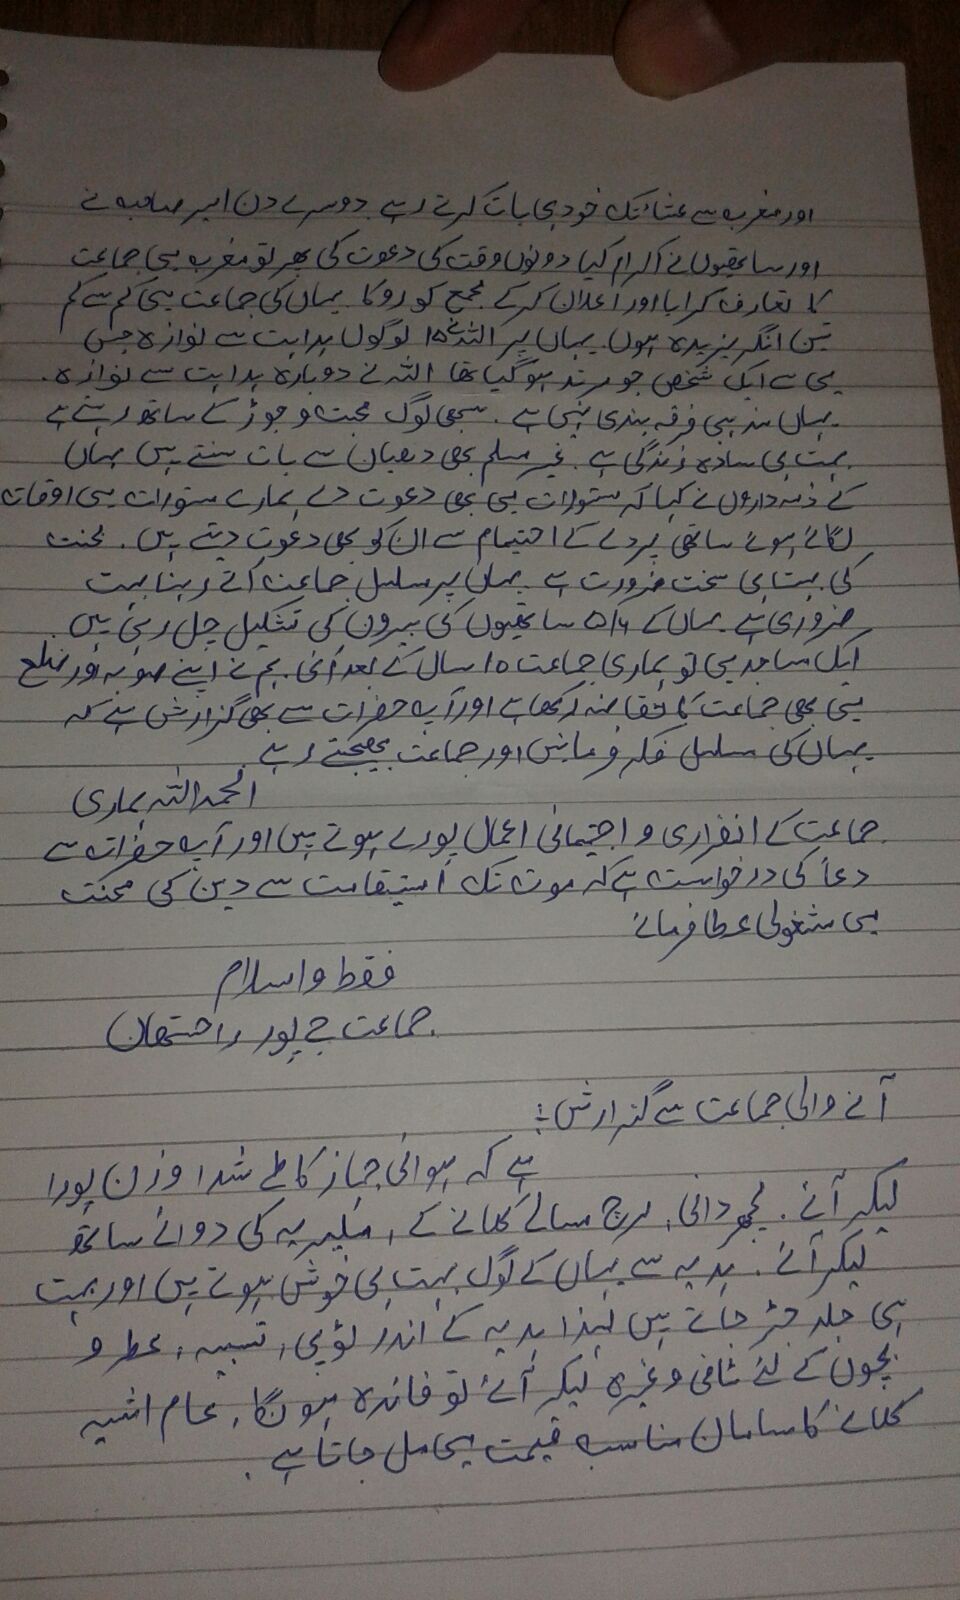 اور مغرب سے عشاء تک خود ہی بات کرتے رہے دوسرے دن امیر صاحب نے
اور ساتھیوں نے اکرام کیا دونوں وقت کی دعوت کی پھر تو مغرب میں جماعت
کا تعارف کرایا اور اعلان کر کے مجمع کو روکا یہاں کی جماعت میں کم سے کم
تین انگریزی دہ ہوں یہاں پر اللہ نے 15 لوگوں ہدایت سے نوازہ جس
میں سے ایک شخص جو مرتد ہو گیا تھا اللہ نے دوبارہ ہدایت سے نوازہ۔
یہاں مذہبی فرقہ بندی نہیں ہے۔ سبھی لوگ محبت و جوڑ کے ساتھ رہتے ہے
بہت ہی سادہ زندگی ہے۔ غیر مسلم بھی دھیان سے بات سنتے ہیں یہاں
کے ذمہ داروں نے کہا کہ مستورات میں بھی دعوت دے ہمارے مستورات میں اوقات
لگائے ہوئے ساتھی پردے کے اہتمام سے ان کو بھی دعوت دیتے ہیں۔ محنت
کی بہت ہی سخت ضرورت ہے یہاں پر مسلسل جماعت آتے رہنا بہت
ضروری ہے یہاں کے 5/6 ساتھیوں کی بیرون کی تشکیل چل رہی ہیں۔
ایک مساجد میں تو ہماری جماعت 15 سال کے بعد آئی۔ ہم نے اپنے صوبہ اور ضلع
میں بھی جماعت کا تقاضہ رکھا ہے اور آپ حضرات سے بھی گزارش ہے کہ
یہاں کی مسلسل فکر فرمائیں اور جماعت بھیجتے رہے۔
الحمد اللہ ہماری
جماعت کے انفرادی و اجتماعی اعمال پورے ہوتے ہیں اور آپ حضرات سے
دعا کی درخواست ہے کہ موت تک استیقامت سے دین کی محنت
میں مشغولی عطا فرمائے
فقط واسلام
جماعت جے پور راجستھان
آنے والی جماعت سے گزارش:
ہے کہ ہوائی جہاز کا طے شدا وزن پورا
لیکر آئے۔ مچھر دانی، مرچ مسالے کھانے کے، ملیریہ کی دوائے ساتھ
لیکر آئے۔ ہدیہ سے یہاں کے لوگ بہت ہی خوش ہوتے ہیں اور بہت
ہی جلد جڑ جاتے ہیں لہذا ہدیہ کے اندر ٹوپی، تسبیہ، عطر و
بچوں کے لئے ٹافی وغیرہ لیکر آئے تو فائدہ ہونگا، عام اشیہ
کھانے کا سامان مناسب قیمت میں مل جاتا ہے۔